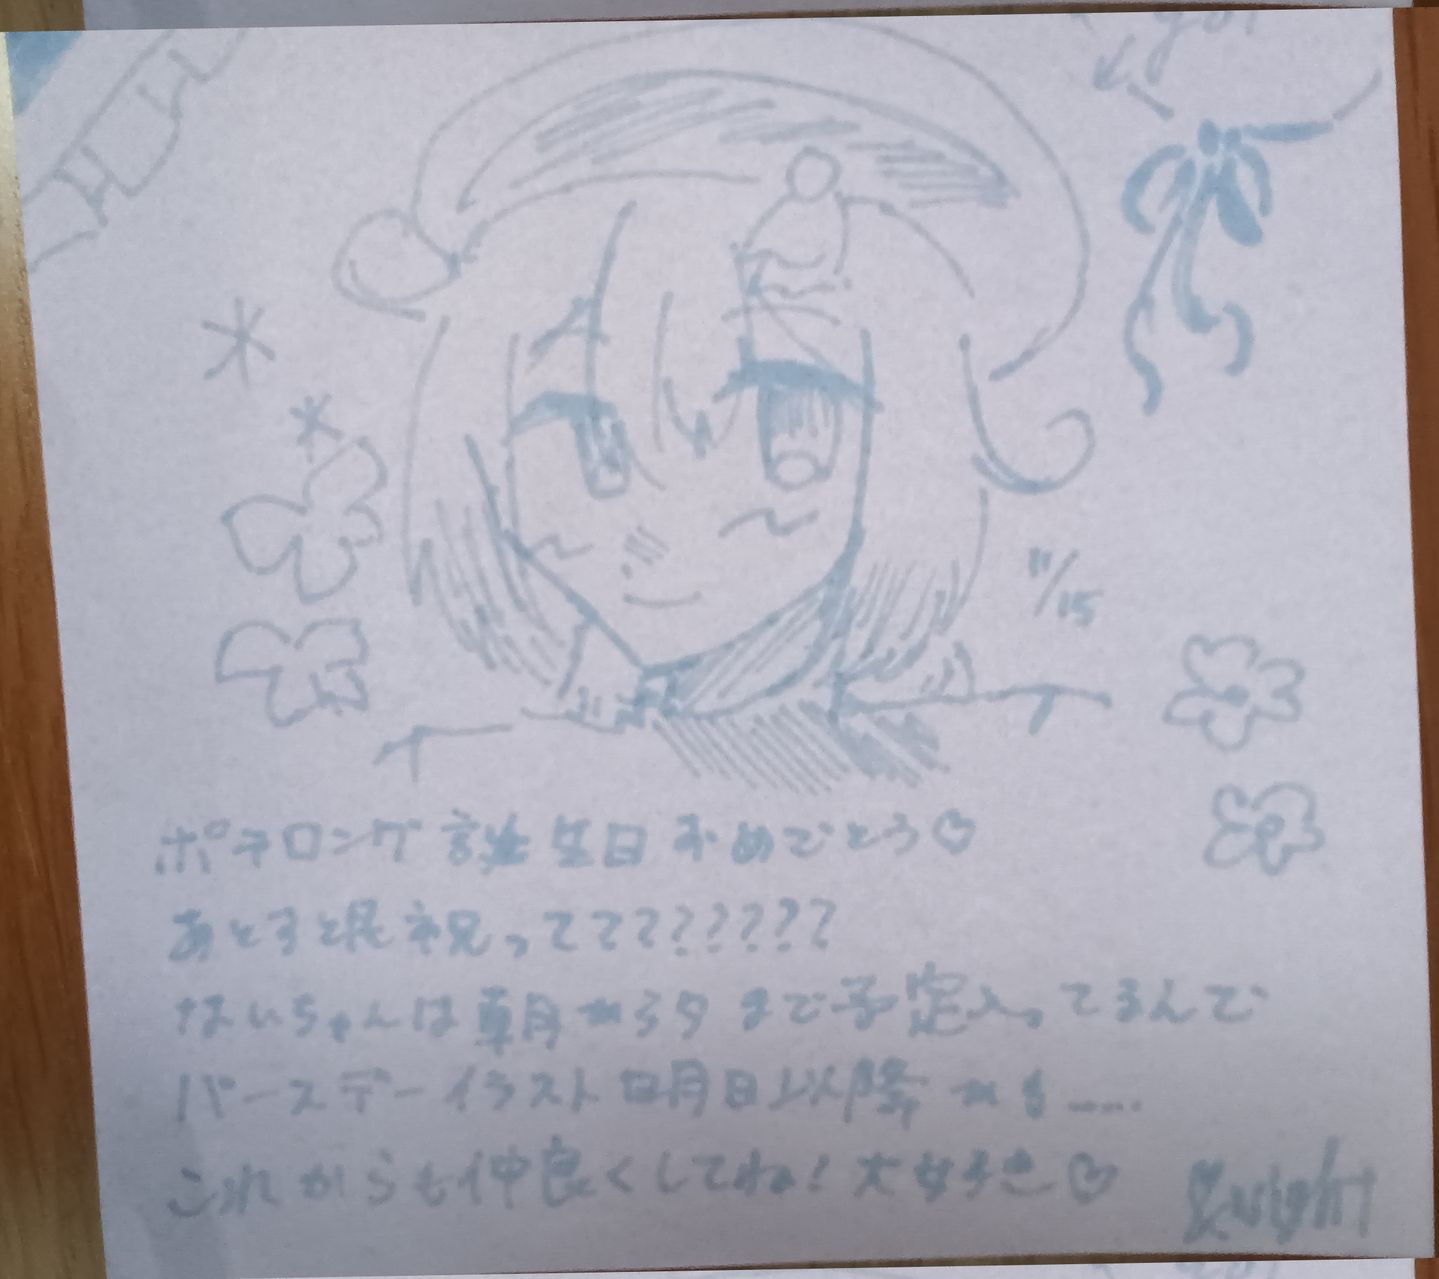 you
11/15
ポテロング誕生日おめでとう♡
祝ってててて??????
ないちゃんは朝から夕まで予定入ってるんで
バースデーイラスト明日以降かも……
これからも仲良くしてね!大好き♡
Knight